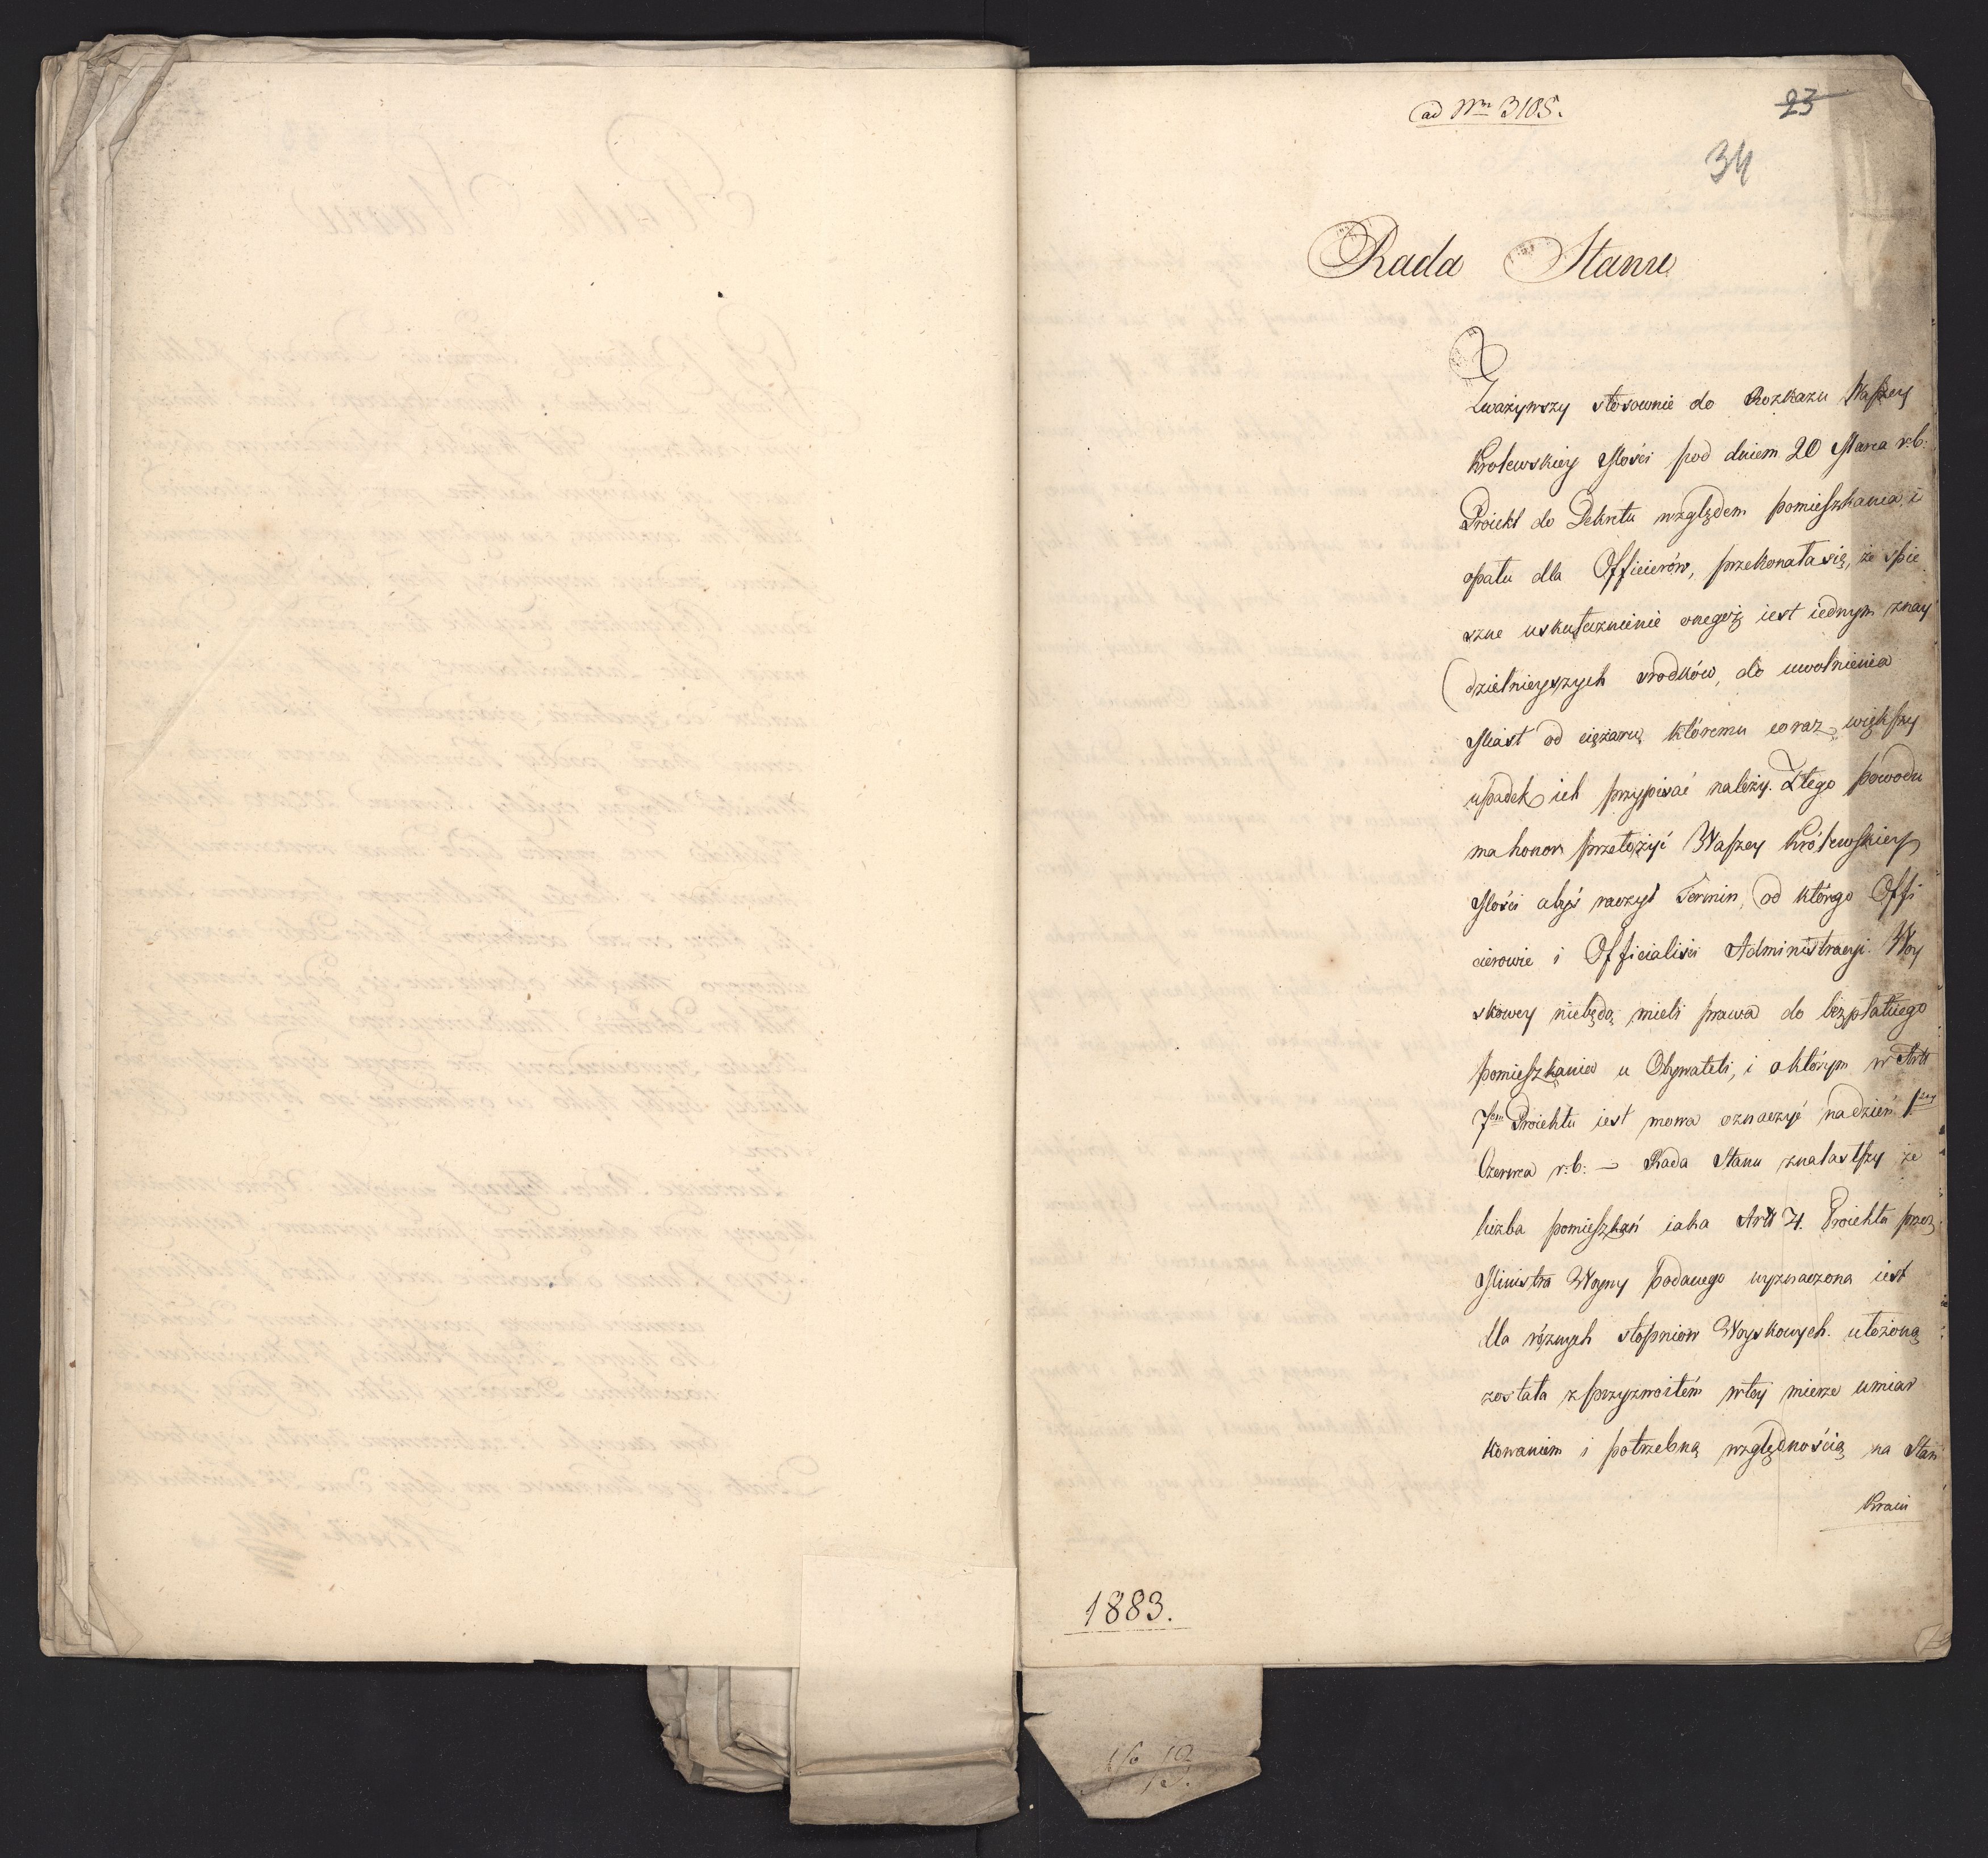 ad Nrm 3105.
23
34
Rada Stanu
Zważywszy stosownie do Rozkazu Waszey
Krolewskiey Mości pod dniem 20 Marca r:b:
Proiekt do Dekretu względem pomieszkania i
opału dla Officierów, przekonała się, że spie
szne uskutecznienie onegoż iest iednym znay
dzielnieyszych srodków, do uwolnienia
Miast od ciężaru, któremu coraz większy
upadek ich przypisać należy. Ztego powodu
ma honor przełożyć Waszey Królewskiey
Mości abyś raczył Termin, od którego Offi
cierowie i Officialisci Administracyi Woy
skowey niebędą mieli prawa do bezpłatnego
pomieszkania u Obywateli, i o którym w Art:
7em Proiektu iest mowa oznaczyć na dzień 1szy
Czerwca r:b: — Rada Stanu znalazłszy że
liczba pomieszkań iaka Art: 4. Proiektu przez
Ministra Woyny podanego wyznaczona iest
dla różnych stopniow Woyskowych ułożoną
została z przyzwoitém wtey mierze umiar
kowaniem i potrzebną względnością na Stan
Kraiu
1883.